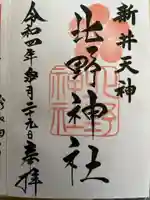 新井天神
北野神社
令和四年五月二十九日奉拝